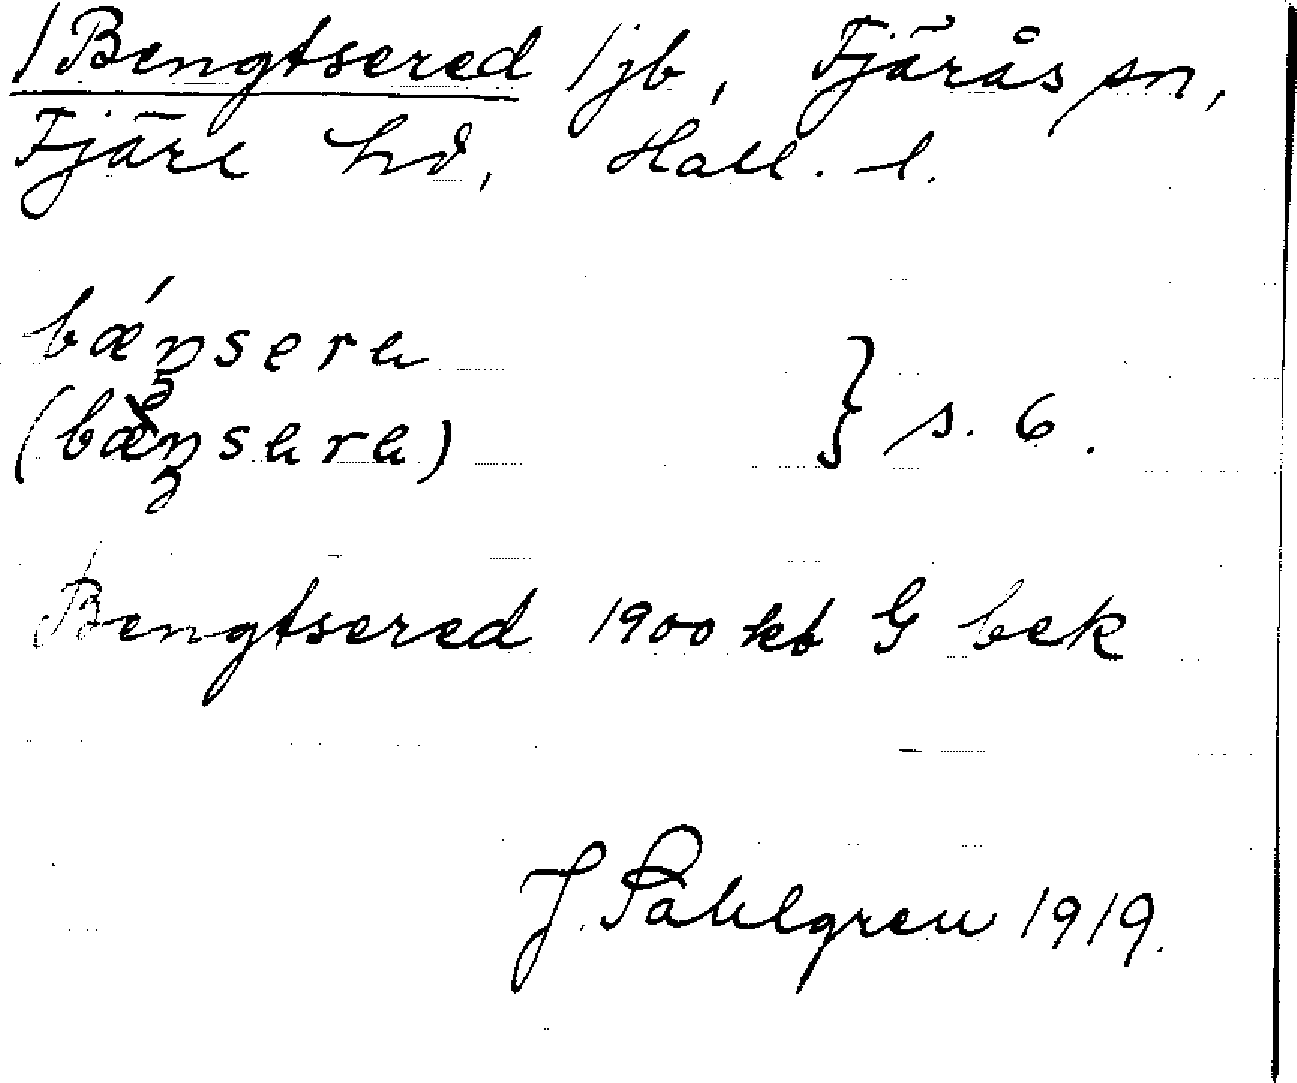 /Bengtsered /jb, Fjärås sn,
Fjäre hd, Hall. l.
bǽnsera
(bǽnsara) } s. 6.
Bengtsered 1900 kb G bek
J. Sahlgren 1919.